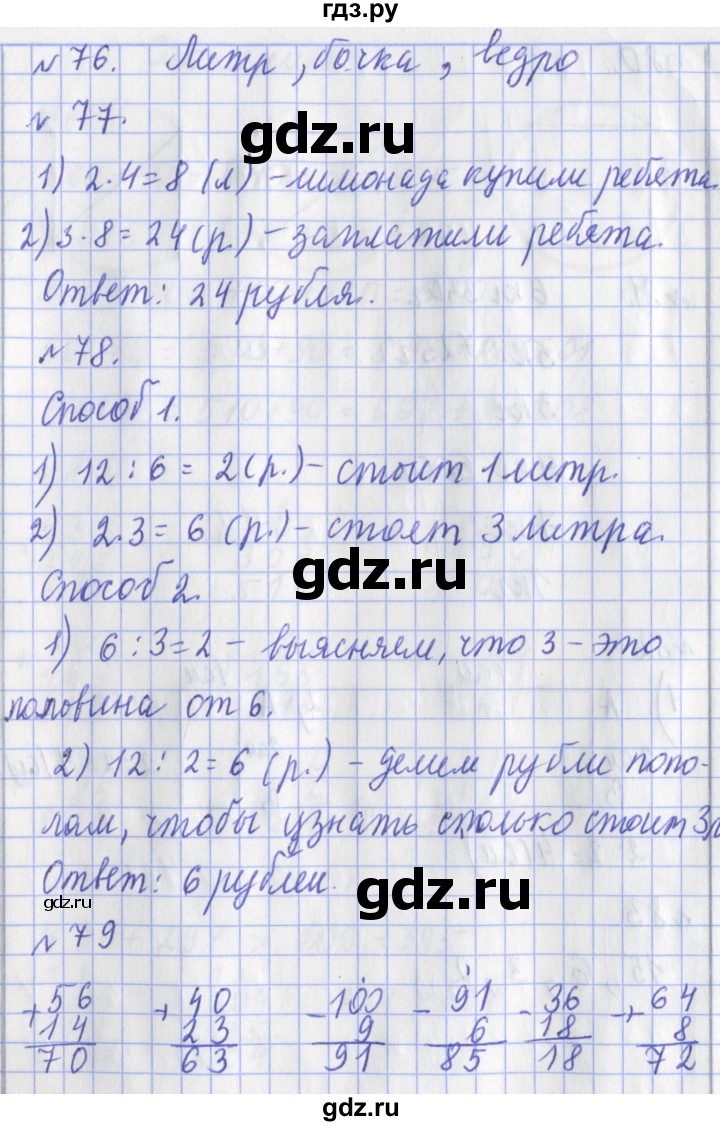 гдз.ру
№ 76. Литр, бочка, ведро
№ 77.
gdz.ru
1) 2·4=8 (л) – лимонада купили ребята.
2) 3·8=24 (р.) – заплатили ребята.
Ответ: 24 рубля.
№ 78.
Способ 1.
1) 12:6=2(р.) – стоит 1 литр.
2) 2·3=6 (р.) – стоят 3 литра.
gdz.ru
Способ 2.
1) 6:3=2 – выясняем, что 3 – это
половина от 6.
2) 12:2=6 (р.) – делим рубли попо-
лам, чтобы узнать сколько стоит 3л
Ответ: 6 рублей.
gdz.ru
gdz.ru
№ 79
+56 +40 -100 -91 -36 +64
14 23 9 6 18 8
70 63 91 85 18 72
gdz.ru